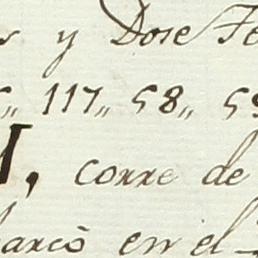 y Dose
117,, 58,, 59
, corre de
barcó en el